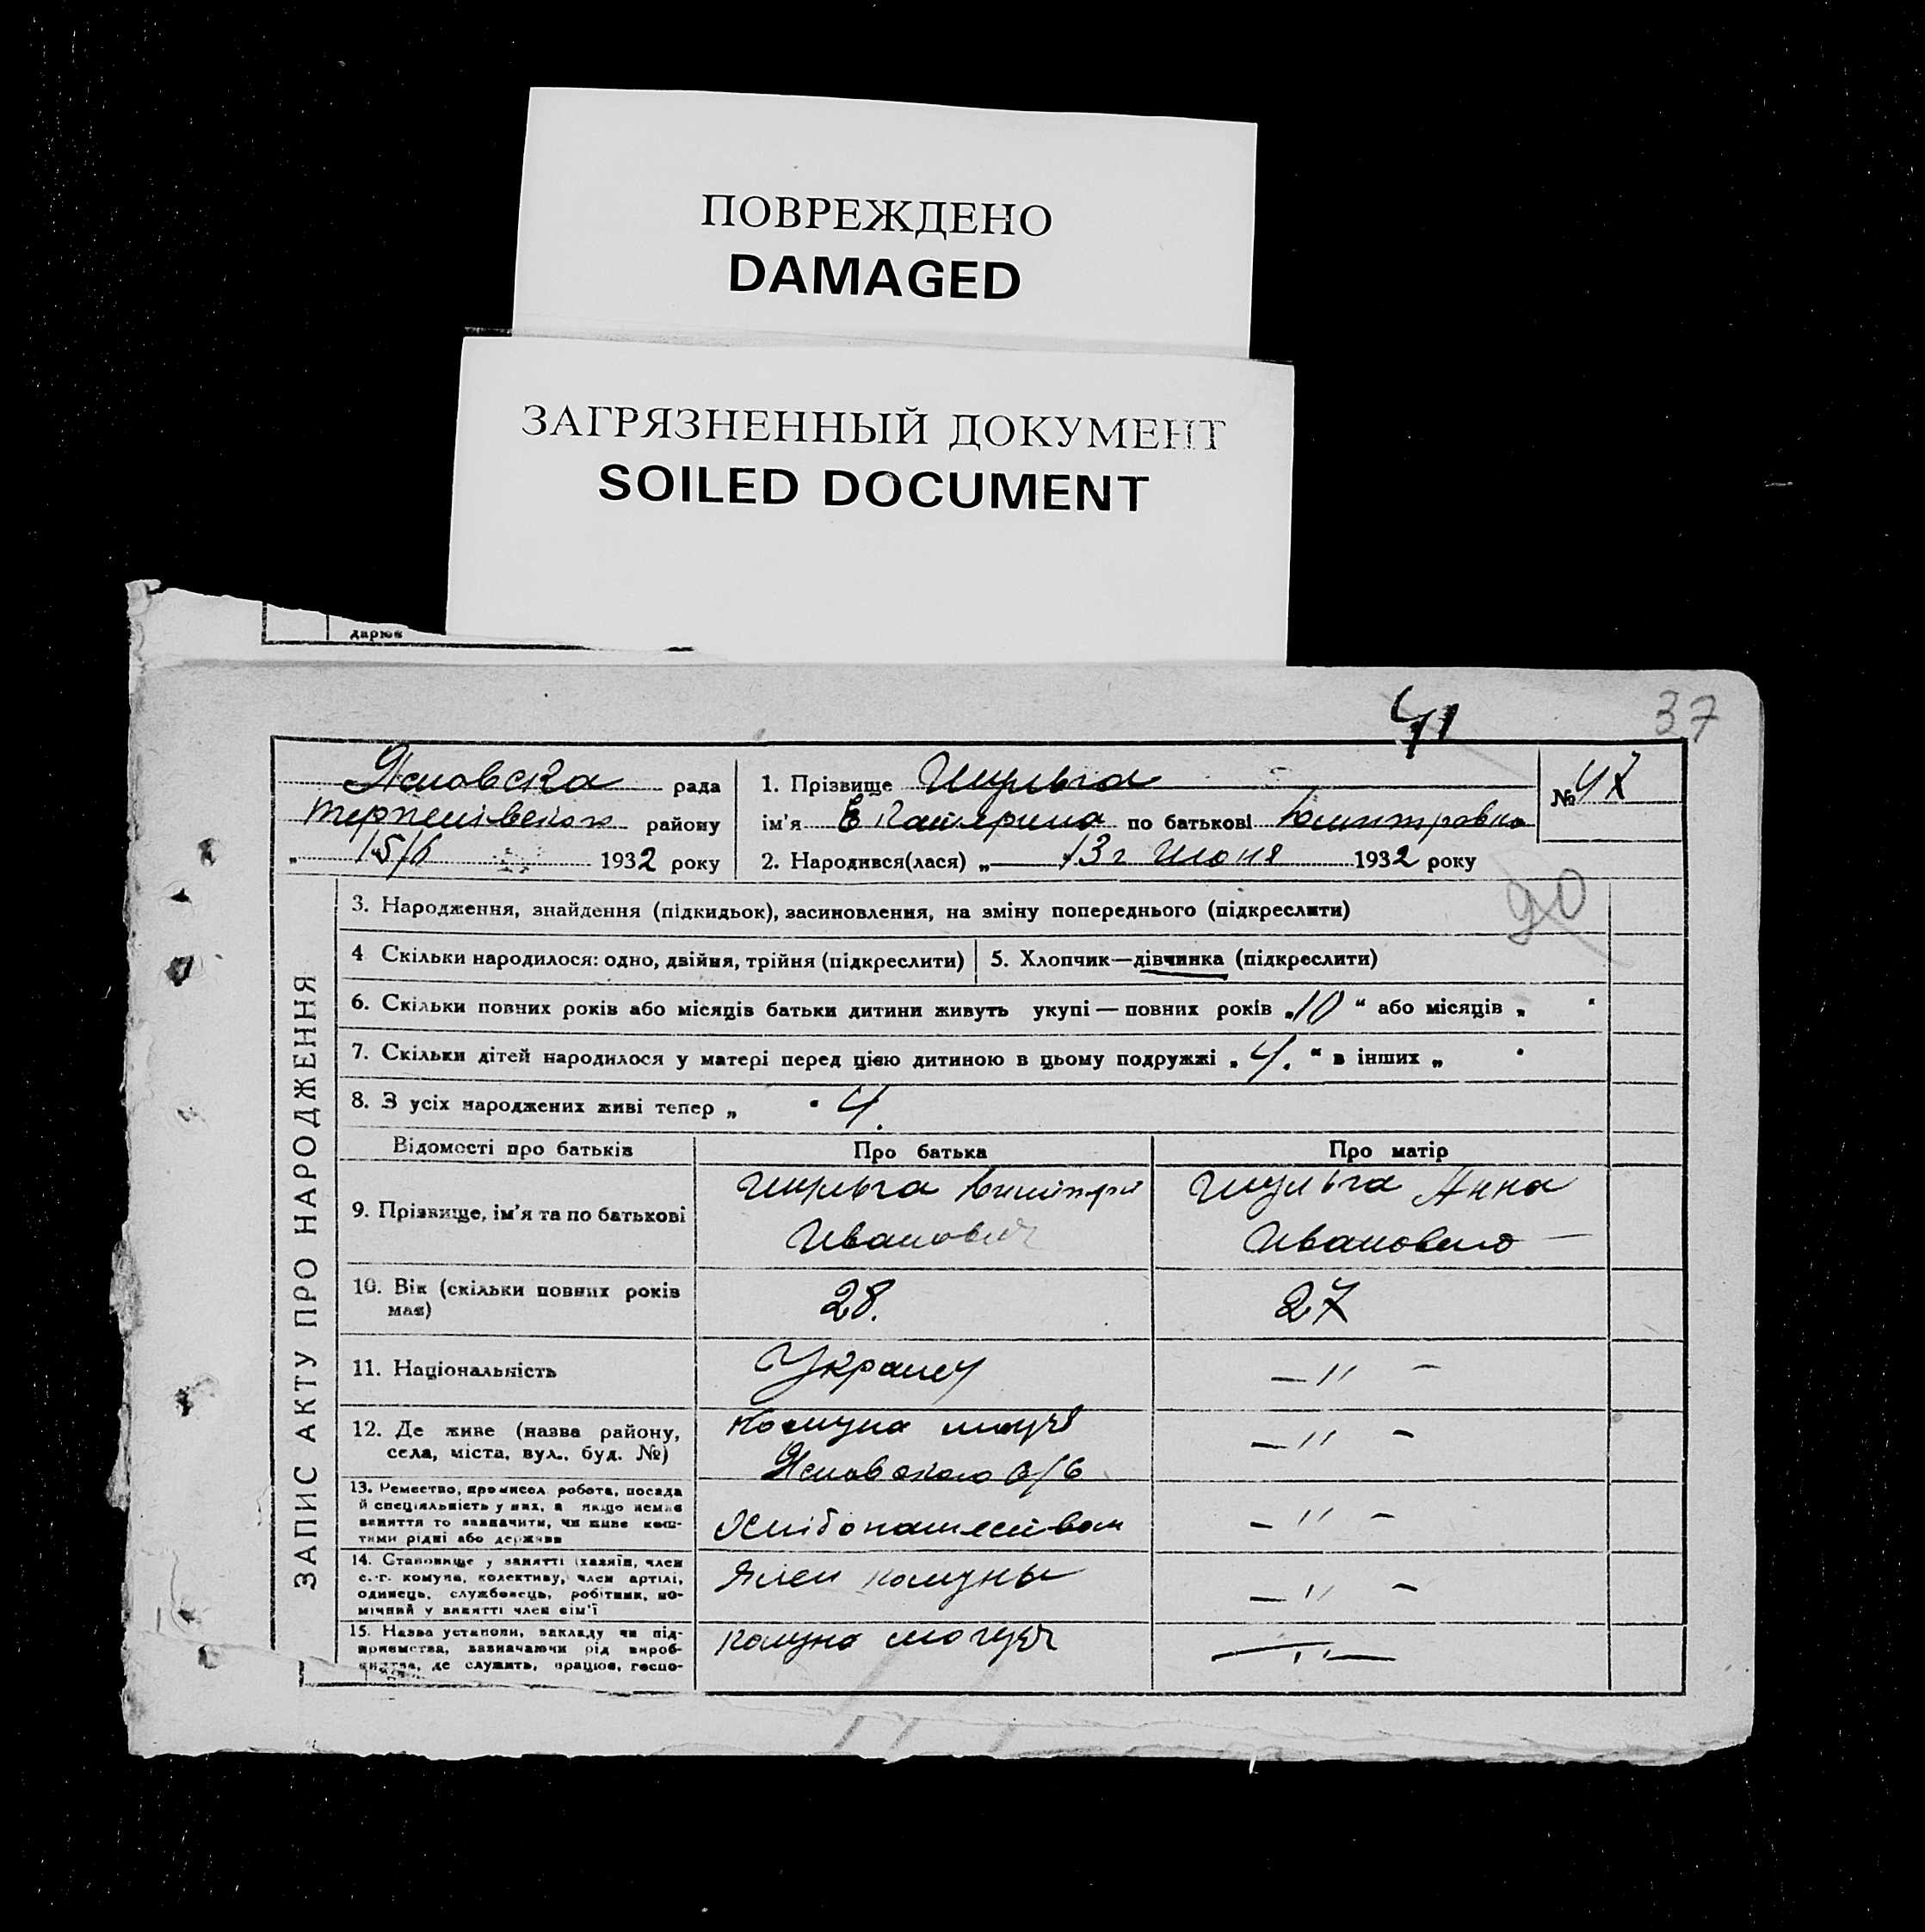 ПОВРЕЖДЕНО
DAMAGED
ЗАГРЯЗНЕННЫЙ ДОКУМЕНТ
SOILED DOCUMENT
дарює
41 37
рада
району
15/6 1932 року
1. Прізвище Шульга
ім'я Екатерина по батькові
2. Народився(лася) „ 13г Июня 1932 року
№ 47
20
ЗАПИС АКТУ ПРО НАРОДЖЕННЯ
3. Народження, знайдення (підкидьок), засиновлення, на зміну попереднього (підкреслити)
4 Скільки народилося: одно, двійня, трійня (підкреслити) 5. Хлопчик—дівчинка (підкреслити)
6. Скільки повних років або місяців батьки дитини живуть укупі — повних років „10“ або місяців „ “
7. Скільки дітей народилося у матері перед цією дитиною в цьому подружжі „4.“ в інших „
8. З усіх народжених живі тепер „ 4.
Відомості про батьків Про батька Про матір
9. Прізвище, ім'я та по батькові
Шульга
Иванович
Шульга Анна
Ивановна
10. Вік (скільки повних років має) 28. 27
11. Національність —〃—
12. Де живе (назва району,
села, міста, вул., буд. №)
Комуна
с/с
—〃—
13. Ремество, промисел, робота, посада
й спеціяльність у них, а якщо немає
заняття то зазначити, чи живе кош-
тами рідні або держави
—〃—
14. Становище у занятті (хазяїн, член
с.-г. комуни, колективу, член артілі,
одинець, службовець, робітник, по-
мічний у занятті член сім'ї
Член комуны —〃—
15. Назва установи, закладу чи під-
приємства, зазначаючи рід вироб-
ництва, де служить, працює, госпо-
Комуна —〃—